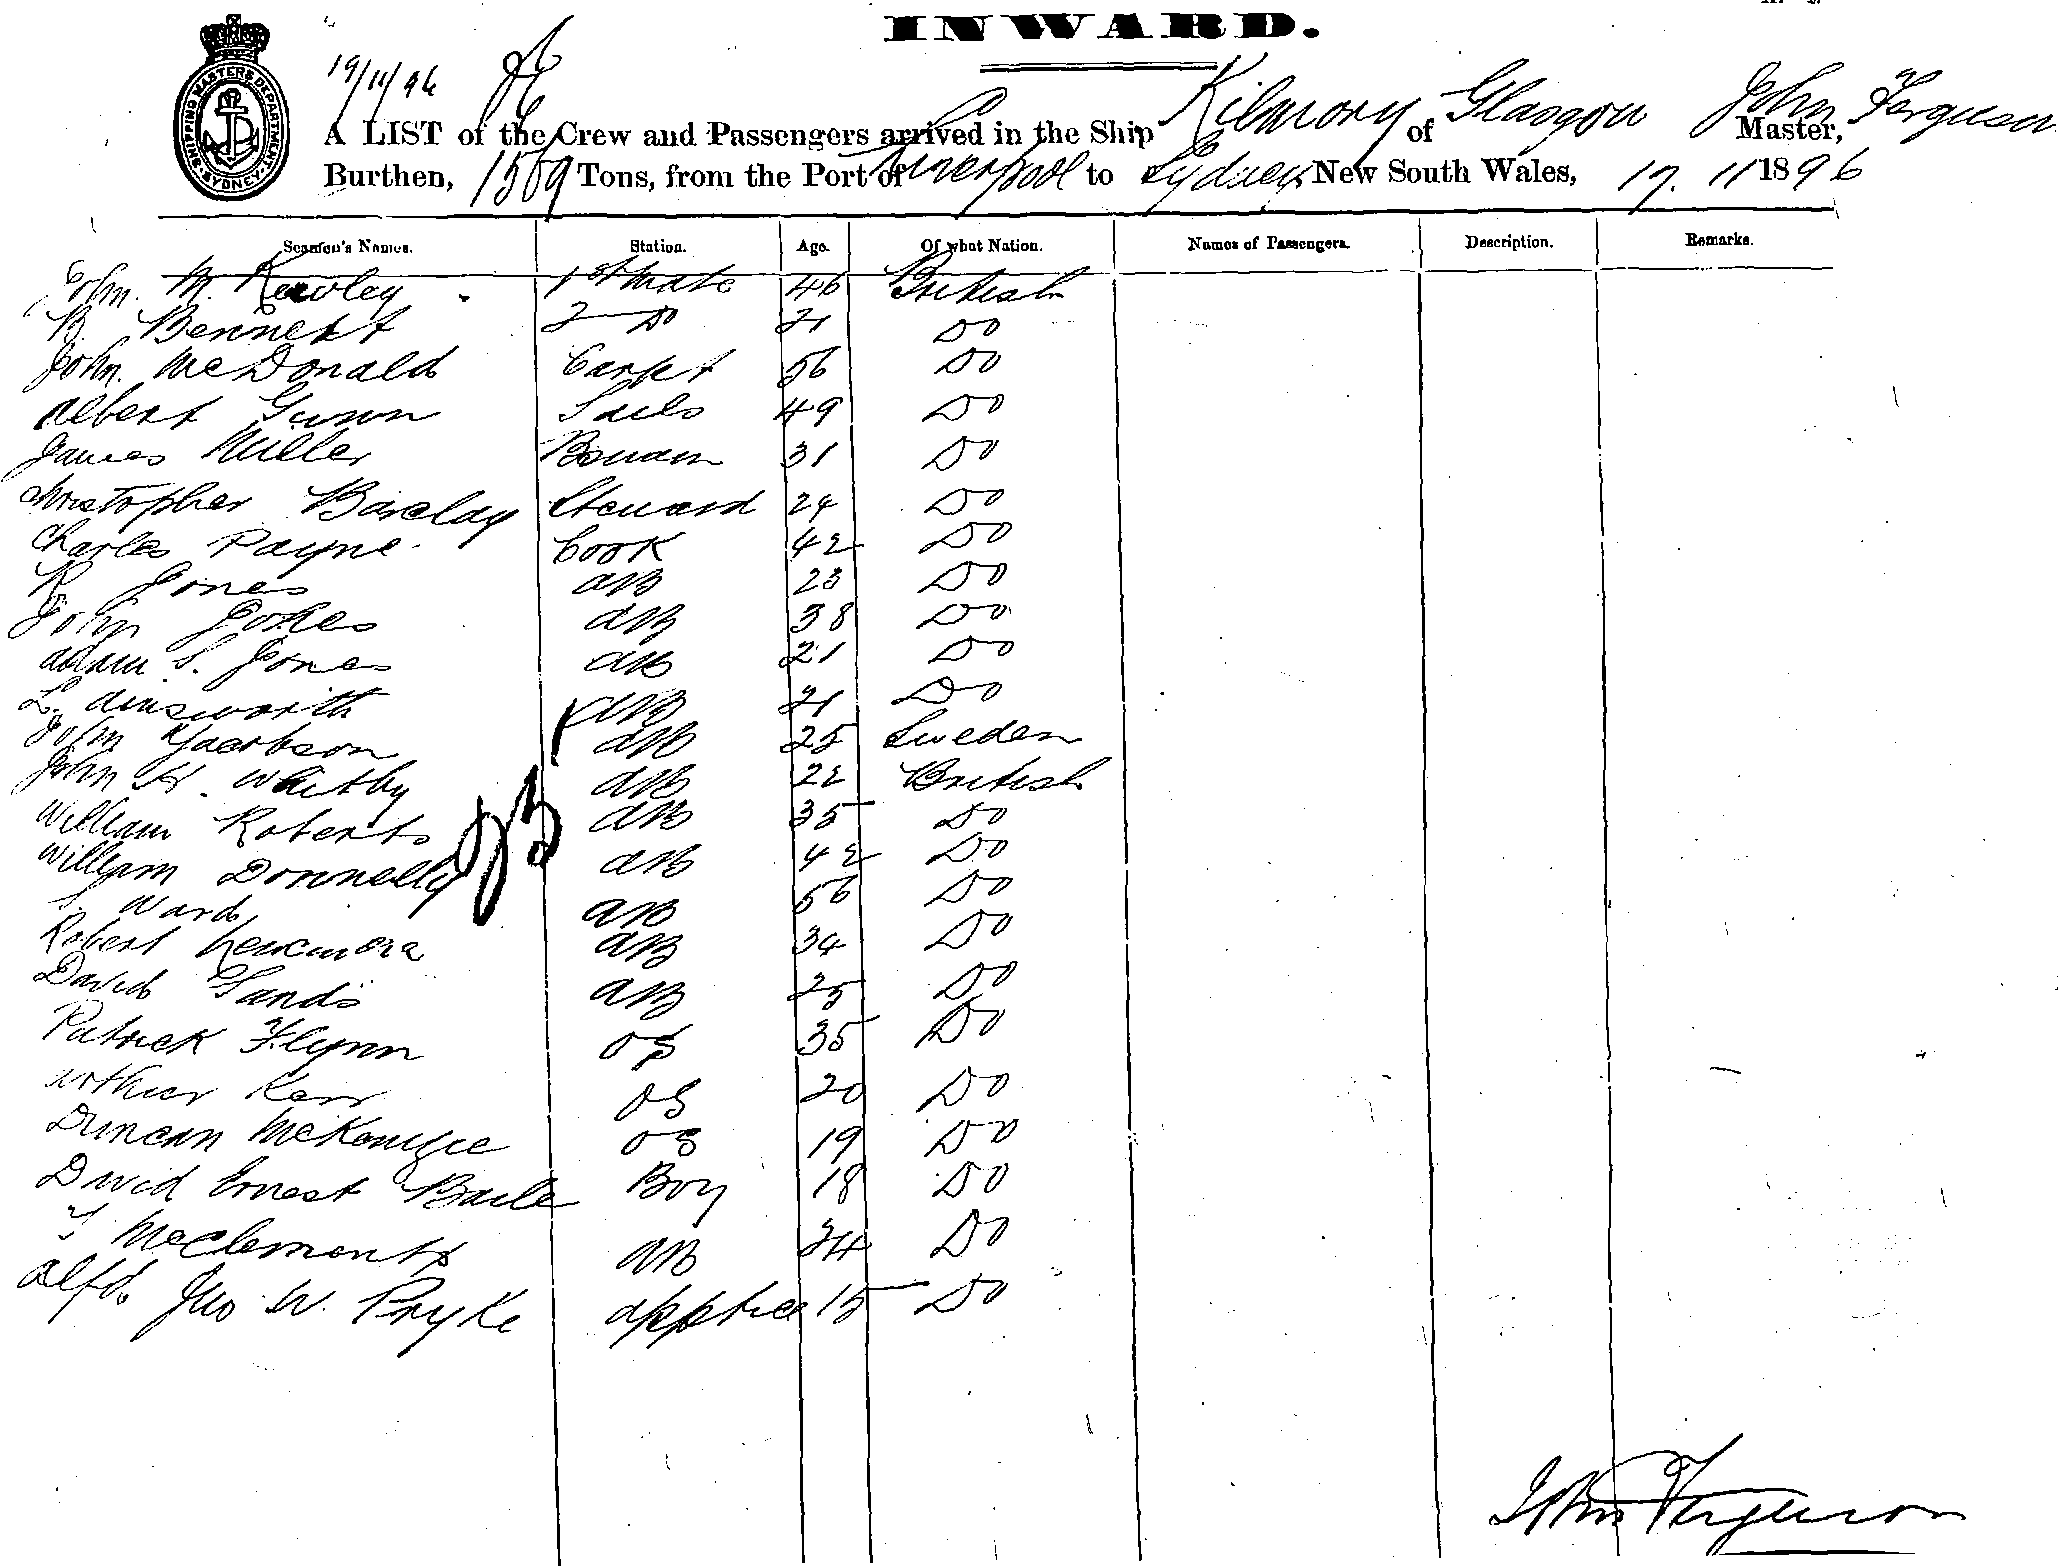 INWARD.
SHIPPING MASTERS DEPARTMENT SYDNEY
19/11/96
A LIST of the Crew and Passengers arrived in the Ship Kilmory of Glasgow John Ferguson Master,
Burthen, 1569 Tons, from the Port of Liverpool to Sydney New South Wales, 17. 11 1896
Seamen's Names. Station. Age. Of what Nation. Names of Passengers. Description. Remarks.
John. M. Kewley 1st mate 46 British
R Bennett 2 Do 21 Do
John. McDonald Carpt 56 Do
Albert Gunn Sails 49 Do
James Miller Bosuun 31 Do
Christopher Barclay Steward 24 Do
Charles Payne Cook 42 Do
R Jones AB 23 Do
John Jones AB 38 Do
Adam S. Jones AB 21 Do
L. Ainsworth AB 21 Do
John Jacobson AB 25 Sweden
John H. Whitby AB 22 British
William Roberts AB 35 Do
William Donnelly AB 42 Do
S. Ward AB 56 Do
Robert AB 34 Do
David Sands AB 25 Do
Patrick Flynn OS 35 Do
Arthur Kerr OS 20 Do
Duncan McKenzie OS 19 Do
David Ernest Boy 18 Do
McClements AB 24 Do
Alfd. Jno W. Pryke apptice 15 Do
John Ferguson